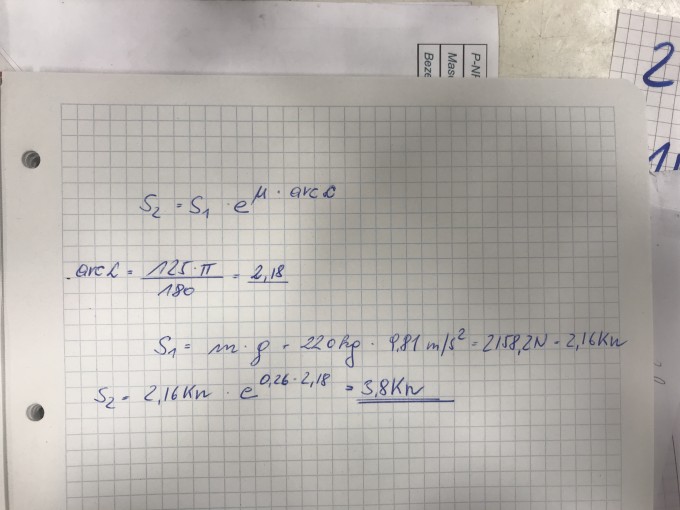 P-NR
Mas
Beze
2
S₂ = S₁ · e^μ · arc α
arc α = 125 · π / 180 = 2,18
S₁ = m · g = 220kg · 9,81 m/s² = 2158,2N = 2,16Kn
S₂ = 2,16Kn · e^0,26 · 2,18 = 3,8Kn